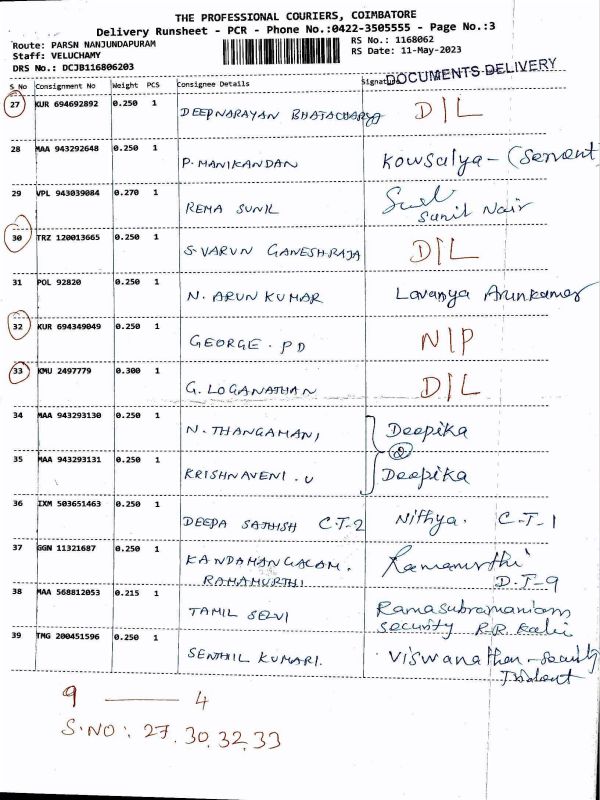 THE PROFESSIONAL COURIERS, COIMBATORE
Delivery Runsheet - PCR - Phone No.:0422-3505555 - Page No.:3
Route: PARSN NANJUNDAPURAM RS No.: 1168062
Staff: VELUCHAMY RS Date: 11-May-2023
DRS No.: DCJB116806203
DOCUMENTS DELIVERY
S_No Consignment No Weight PCS Consignee Details Signature
27 KUR 694692892 0.250 1 DEEPNARAYAN BHATACHARYA D/L
28 MAA 943292648 0.250 1 P. MANIKANDAN Kowsalya - (Servent)
29 VPL 943039084 0.270 1 REMA SUNIL
Sunil Nair
30 TRZ 120013665 0.250 1 S. VARUN GANESH RAJA D/L
31 POL 92820 0.250 1 N. ARUN KUMAR Lavanya Arunkumar
32 KUR 694349049 0.250 1 GEORGE . P D N/P
33 KMU 2497779 0.300 1 G. LOGANATHAN D/L
34 MAA 943293130 0.250 1 N. THANGAMANI Deepika
2
35 MAA 943293131 0.250 1 KRISHNAVENI . U Deepika
36 IXM 503651463 0.250 1 DEEPA SATHISH C.T-2 Nithya. C.T-1
37 GGN 11321687 0.250 1 KANDAMANGALAM. Ramamurthi
RAMAMURTHI D.T-9
38 MAA 568812053 0.215 1 TAMIL SELVI Ramasubramaniam
security R.R.
39 TMG 200451596 0.250 1 SENTHIL KUMARI. Viswanathan - Security
Trident
9 — 4
S.NO: 27.30.32.33